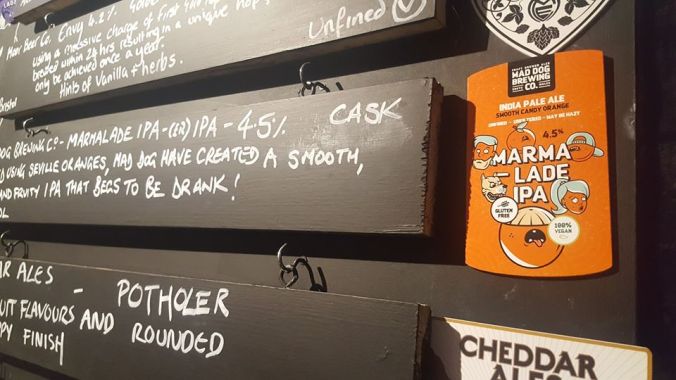 Moor Beer Co. Envy 4.2%
using a massive charge of first
brewed within 24 hrs resulting in a unique hop,
only be achieved once a year.
Hints of Vanilla + herbs.
Unfined
Bristol
DOG BREWING CO - MARMALADE IPA - (ER) IPA - 4.5% CASK
USING SEVILLE ORANGES, MAD DOG HAVE CREATED A SMOOTH,
AND FRUITY IPA THAT BEGS TO BE DRANK!
OL
AR ALES - POTHOLER
UIT FLAVOURS AND ROUNDED
PPY FINISH
MAD DOG
BREWING
CO.
INDIA PALE ALE
SMOOTH CANDY ORANGE
MAY BE HAZY
4.5%
MARMA
-LADE
IPA
GLUTEN
FREE
100%
VEGAN
CHEDDAR
ALES